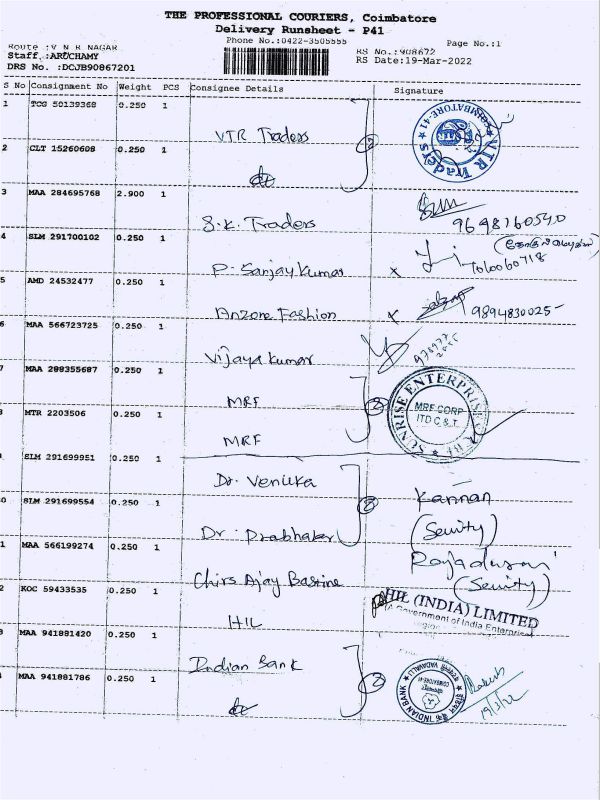 THE PROFESSIONAL COURIERS, Coimbatore
Delivery Runsheet - P41
Phone No.:0422-3505555 Page No.:1
Route :V N R NAGAR RS No.:908672
Staff :ARUCHAMY RS Date:19-Mar-2022
DRS No. :DCJB90867201
S No Consignment No Weight PCS Consignee Details Signature
1 TCG 50139368 0.250 1
VTR Traders 2 VTR Traders COIMBATORE-41
2 CLT 15260608 0.250 1
3 MAA 284695768 2.900 1
S.K. Traders 9698160540
4 SLM 291700102 0.250 1
P. Sanjay Kumar x 7010060718
5 AMD 24532477 0.250 1
Anzone Fashion x 9894830025
6 MAA 566723725 0.250 1
Vijaya Kumar
7 MAA 288355687 0.250 1
MRF 2 SUNRISE ENTERPRISE
MRF CORP
ITD C & T.
MTR 2203506 0.250 1
MRF
SLM 291699951 0.250 1
Dr. Venilka 2 Kannan
0 SLM 291699554 0.250 1
Dr. Prabhaker
1 MAA 566199274 0.250 1
Chirs Ajay Bastine Rajadurai
2 KOC 59433535 0.250 1
HIL HIL (INDIA) LIMITED
(A Government of India Enterprise)
MAA 941881420 0.250 1
Indian Bank 2 INDIAN BANK
4 MAA 941881786 0.250 1
Rakesh
19/3/22